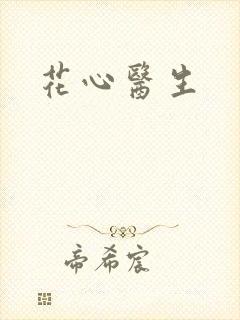 花心醫生
帝希宸